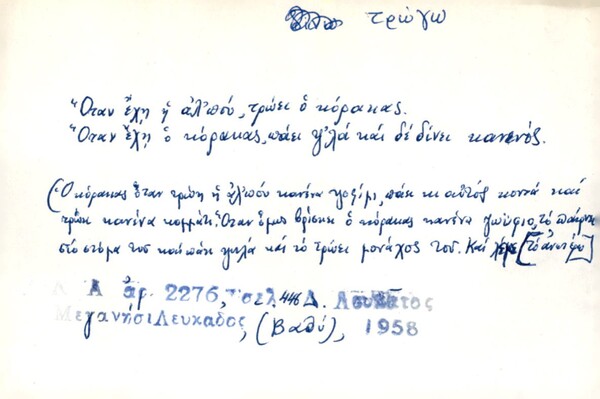 τρώγω
"Όταν ἔχη ἡ ἀλ'πού, τρώει ὁ κόρακας.
Όταν ἔχη ὁ κόρακας, πάει ψ'λά καί δέ δίνει κανενός.
(Ὁ κόρακας ὅταν τρώη ἡ ἀλ'πού κανένα ψοφίμι, πάει κι αὐτός κοντά καί
τρώει κανένα κομμάτι. Ὅταν ὅμως βρίσκει ὁ κόρακας κανένα ψωφίο, τό παίρνει
στό στόμα του καί πάει ψηλά καί τό τρώει μονάχος του. Καί λέμε [τό ἀνωτέρω]
Λ. Α ἀρ. 2276, σελ. 446 Δ. Λουκᾶτος
Μεγανήσι Λευκάδος, (Βαθύ), 1958